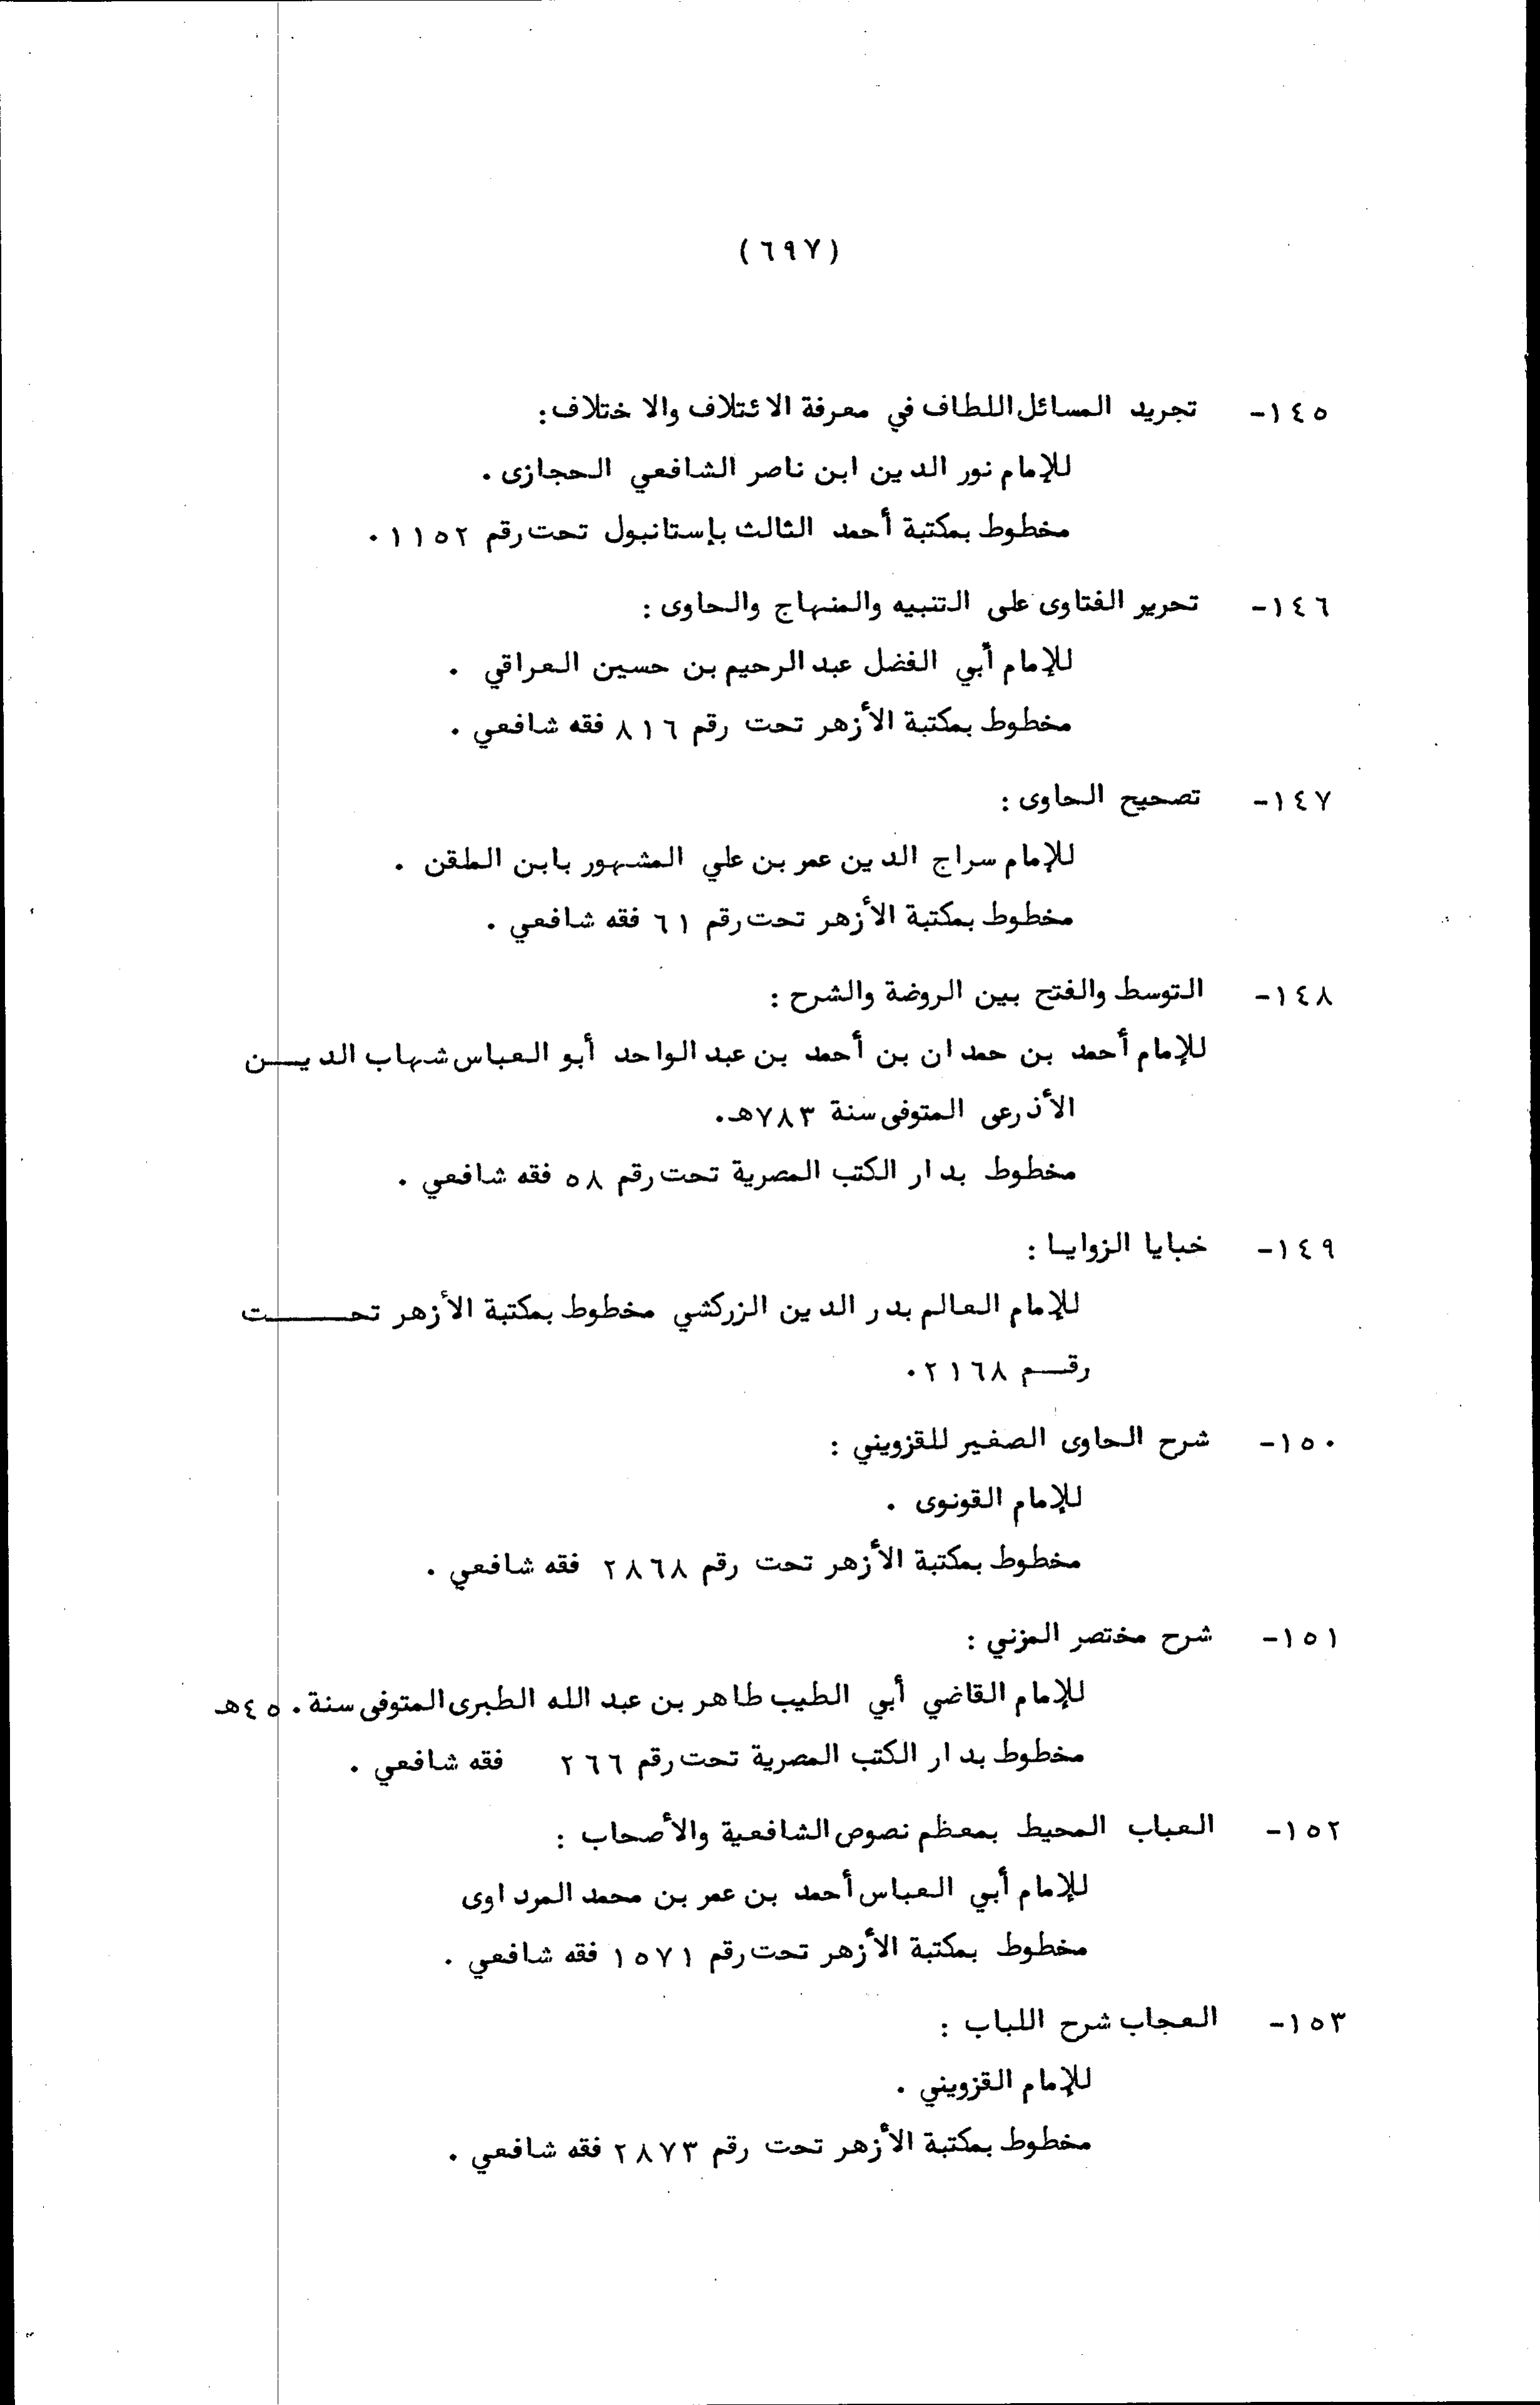 (٦٩٧)
١٤٥- تجريد المسائل اللطاف في معرفة الائتلاف والاختلاف:
للإمام نور الدين ابن ناصر الشافعي الحجازى .
مخطوط بمكتبة أحمد الثالث بإستانبول تحت رقم ١١٥٢ .
١٤٦- تحرير الفتاوى على التنبيه والمنهاج والحاوى :
للإمام أبي الفضل عبد الرحيم بن حسين العراقي .
مخطوط بمكتبة الأزهر تحت رقم ٨١٦ فقه شافعي .
١٤٧- تصحيح الحاوى :
للإمام سراج الدين عمر بن علي المشهور بابن الملقن .
مخطوط بمكتبة الأزهر تحت رقم ٦١ فقه شافعي .
١٤٨- التوسط والفتح بين الروضة والشرح :
للإمام أحمد بن حمدان بن أحمد بن عبد الواحد أبو العباس شهاب الديـــن
الأذرعى المتوفى سنة ٧٨٣هـ.
مخطوط بدار الكتب المصرية تحت رقم ٥٨ فقه شافعي .
١٤٩- خبايا الزوايـا :
للإمام العالم بدر الدين الزركشي مخطوط بمكتبة الأزهر تحـــــت
رقـــم ٢١٦٨ .
١٥٠- شرح الحاوى الصغير للقزويني :
للإمام القونوى .
مخطوط بمكتبة الأزهر تحت رقم ٢٨٦٨ فقه شافعي .
١٥١- شرح مختصر المزني :
للإمام القاضي أبي الطيب طاهر بن عبد الله الطبرى المتوفى سنة ٤٥٠هـ
مخطوط بدار الكتب المصرية تحت رقم ٢٦٦ فقه شافعي .
١٥٢- العباب المحيط بمعظم نصوص الشافعية والأصحاب :
للإمام أبي العباس أحمد بن عمر بن محمد المرداوى
مخطوط بمكتبة الأزهر تحت رقم ١٥٧١ فقه شافعي .
١٥٣- العجاب شرح اللباب :
للإمام القزويني .
مخطوط بمكتبة الأزهر تحت رقم ٢٨٧٣ فقه شافعي .